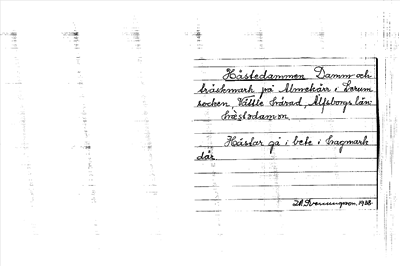 Hästedammen Damm och
träskmark på Almekärr i Lerum
socken, Vättle härad, Älfsborgs län
hästodamon.
Hästar gå i bete i hagmark
där.
1928